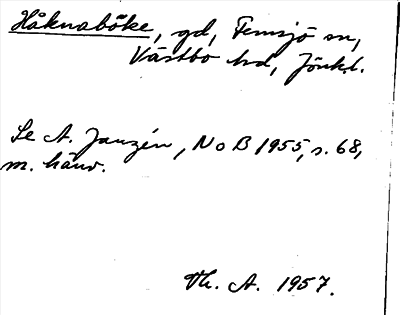 Håknaböke, gd, Femsjö sn,
Västbo hd, Jönk.l.
Se A. Janzén, NoB 1955, s. 68,
m. hänv.
Th. A. 1957.